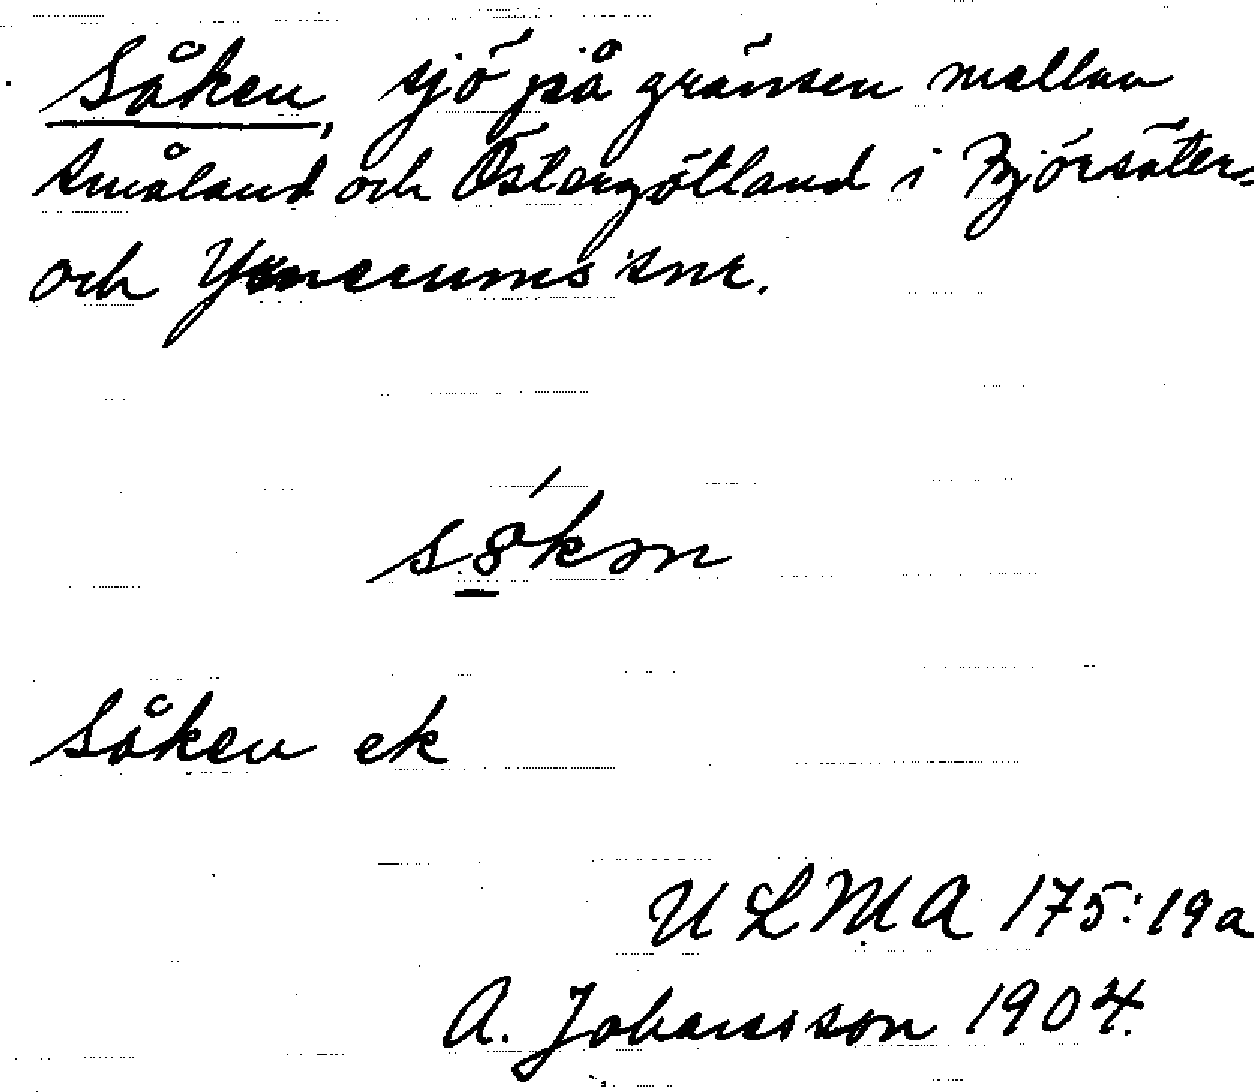 Såken, sjö på gränsen mellan
Småland och Östergötland i Björsäters
och Yxnerums snr.
såken ek
ULMA 175:19a
A. Johansson 1904.